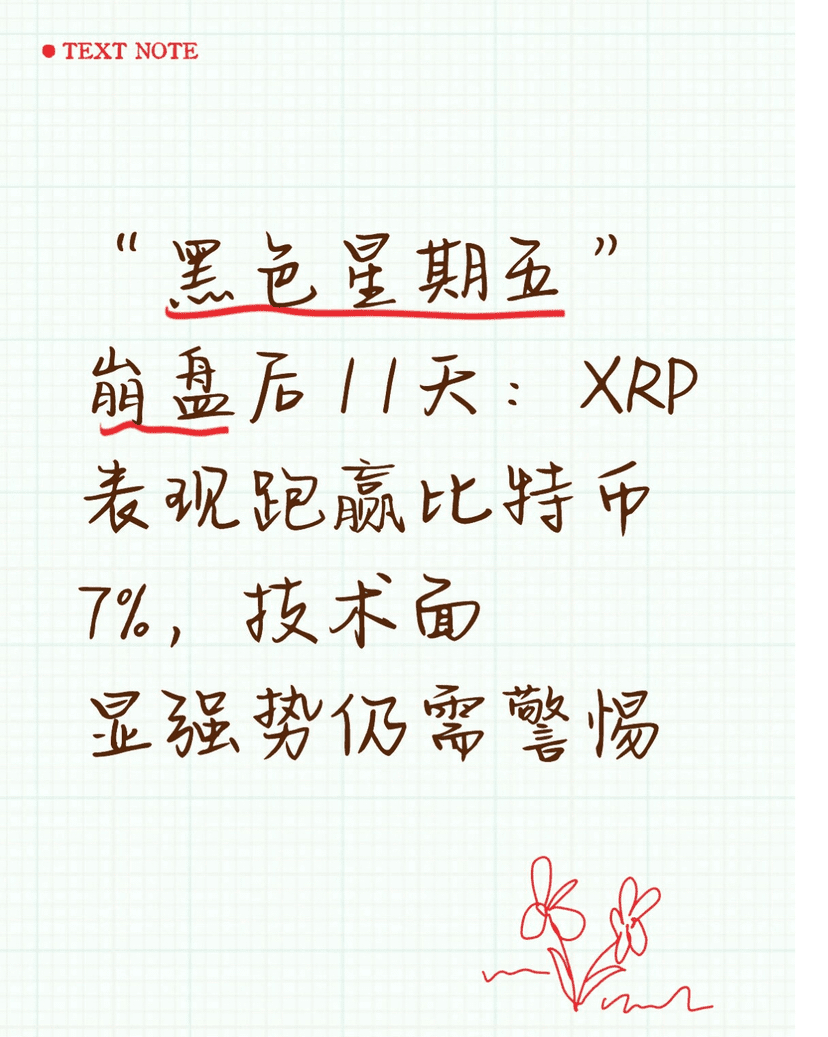 TEXT NOTE
“黑色星期五”
崩盘后11天：XRP
表现跑赢比特币
7%，技术面
显强势仍需警惕